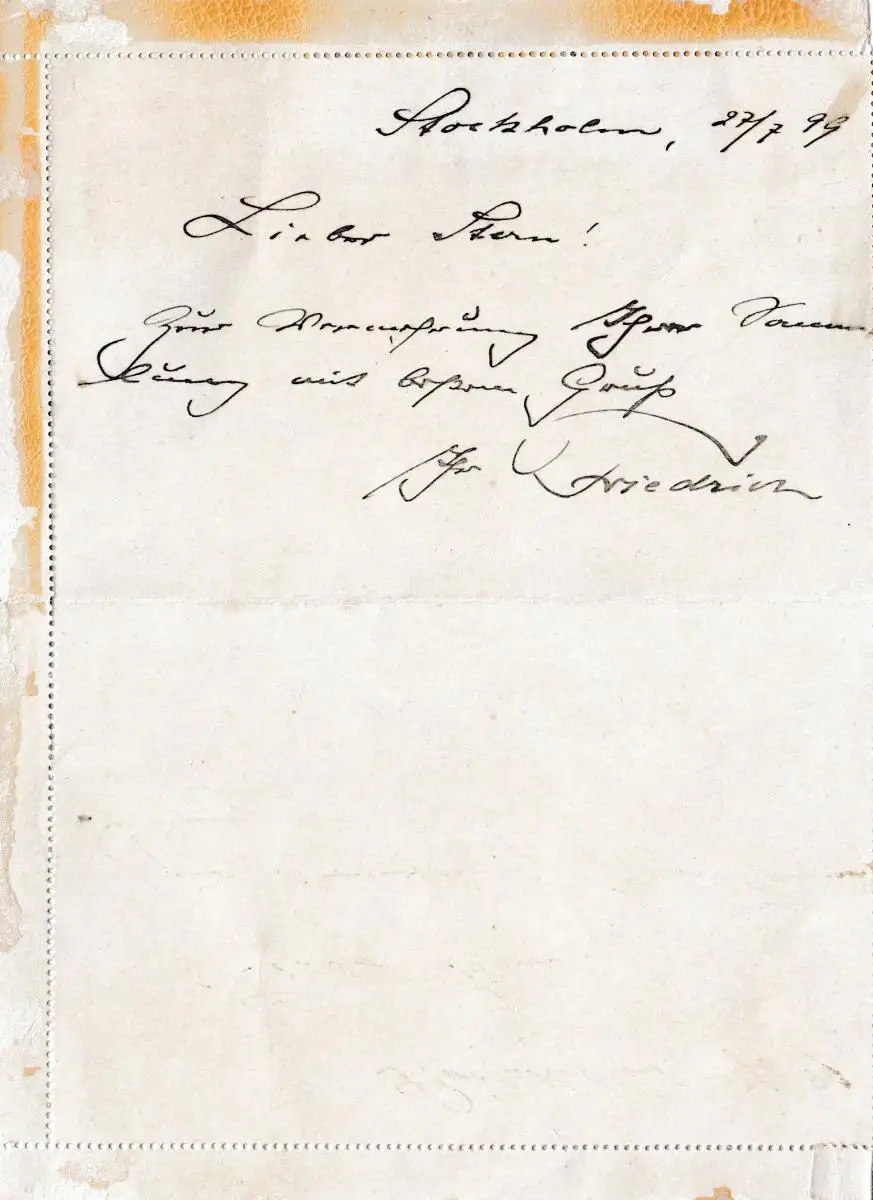 Stockholm, 27/7 99
Lieber Stern!
Zur Vermehrung Ihrer Samm-
lung mit bestem Gruß
Ihr Friedrich